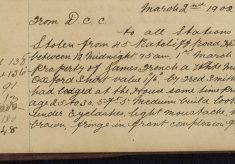 March 2nd 1902
From D.C.C.
to all Stations
Stolen from 45 Ratcliff Road
between 12 Midnight 95 am 1st March
property of James French a White
Oxford Shirt value 1/6 by Fred Smith
had lodged at the House some time
age 25 to 30. 5 ft 5 Medium build
under Eyelashes, light moustache
brown, fringe in front complexion